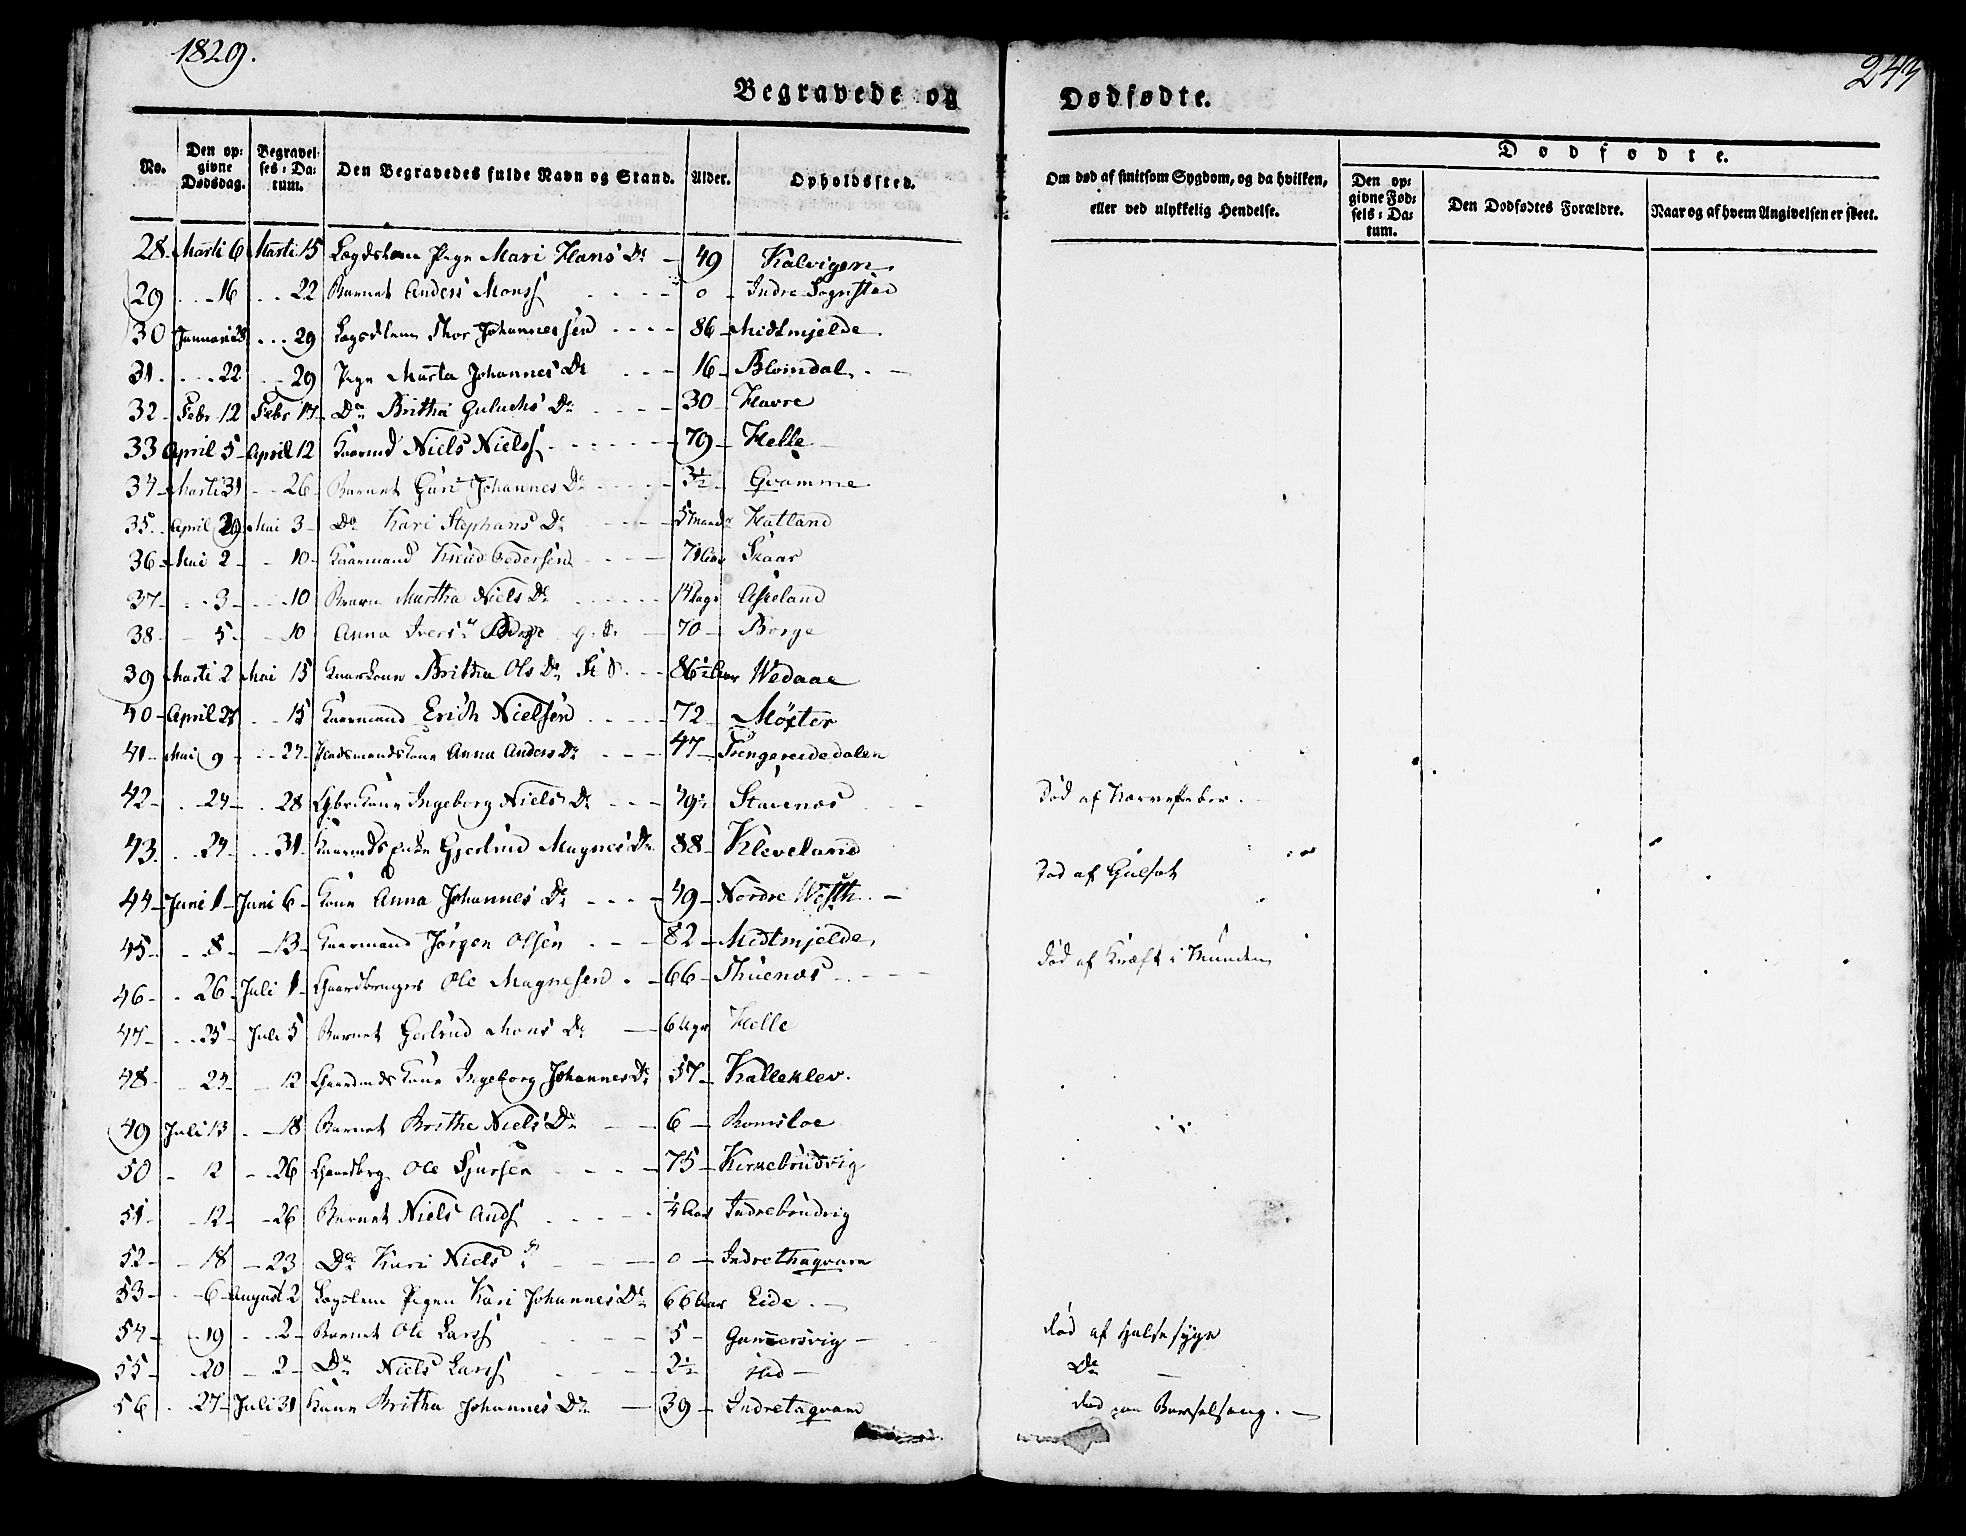 1829.
243
Begravede og Dødfødte.
No.
Den opgivne Dødsdag.
Begravelses-Datum.
Den Begravedes fulde Navn og Stand.
Alder.
Opholdssted.
Om død af smitsom Sygdom, og da hvilken, eller ved ulykkelig Hendelse.
Dødfødte.
Den opgivne Fødsels-Datum.
Den Dødfødtes Forældre.
Naar og af hvem Angivelsen er skeet.
28 Marti 6 Marti 15 Pige Mari Hans Dr 49 Kalvigen
29 - 16 - 22 Barnet Anders Monss 0 Indre Sognstad
30 Januari 28 - 29 Lægdslem Johannessen 86 Midtmjelde
31 - 22 - 29 Pige Marta Johannes Dr 16 Blomdal
32 Febr 12 Febr 17 Do Britha Dr 30 Havre
33 April 5 April 12 Niels Nielss 79 Helle
34 Marti 31 - 26 Barnet Guri Johannes Dr 3½ Qvamme
35 April Mai 3 Do Kari Stephans Dr 5 Hatland
36 Mai 2 - 10 Kaarmand Knud Pedersen 71 Aar Skaar
37 - 3 - 10 Martha Niels Dr 14 Dage Askeland
38 - 5 - 10 Anna Ivers 70 Borge
39 Marti 2 Mai 15 Kaarkone Britha Ols Dr 86½ Aar Wedaae
40 April - 15 Kaarmand Erich Nielsen 72 Møster
41 Mai 9 - 24 Anna Anders Dr 47 Trengereidedalen
42 - 24 - 28 Ingeborg Niels Dr 49½ Stavenæs død af Nervefeber.
43 - 24 - 31 Gjertrud Magnes Dr 88 Kleveland
44 Juni 1 Juni 6 Kone Anna Johannes Dr 49 Nordre død af Gulsot
45 - 8 - 13 Kaarmand Jørgen Olsen 82 Midtmjelde
46 - 26 Juli 1 Gaardbruger Ole Magnesen 66 Thuenæs død af Kræft i Munden
47 - 25 Juli 5 Barnet Gertrud Mons Dr 6 Helle
48 - 24 - 12 Gaardmds Kone Ingeborg Johannes Dr 57 Kalleklev.
49 Juli 13 - 18 Barnet Brithe Niels Dr 6 Romsloe
50 - 12 - 26 Gaardbrg Ole Sjursen 75 Kirkebrudvig
51 - 12 - 26 Barnet Niels Ands ¼ Aar Indrebrudvig
52 - 18 - 23 Do Kari Niels Dr 0 Indrethaqvam
53 - 6 August 2 Lægslem Pigen Kari Johannes Dr 66 Aar Eide
54 - 19 - 2 Barnet Ole Larss 5 Gammersvig død af Halsesyge
55 - 20 - 2 Do Niels Larss 2½ Do
56 - 27 Juli 31 Kone Britha Johannes Dr 39 Indretaqvam død paa Barselseng.